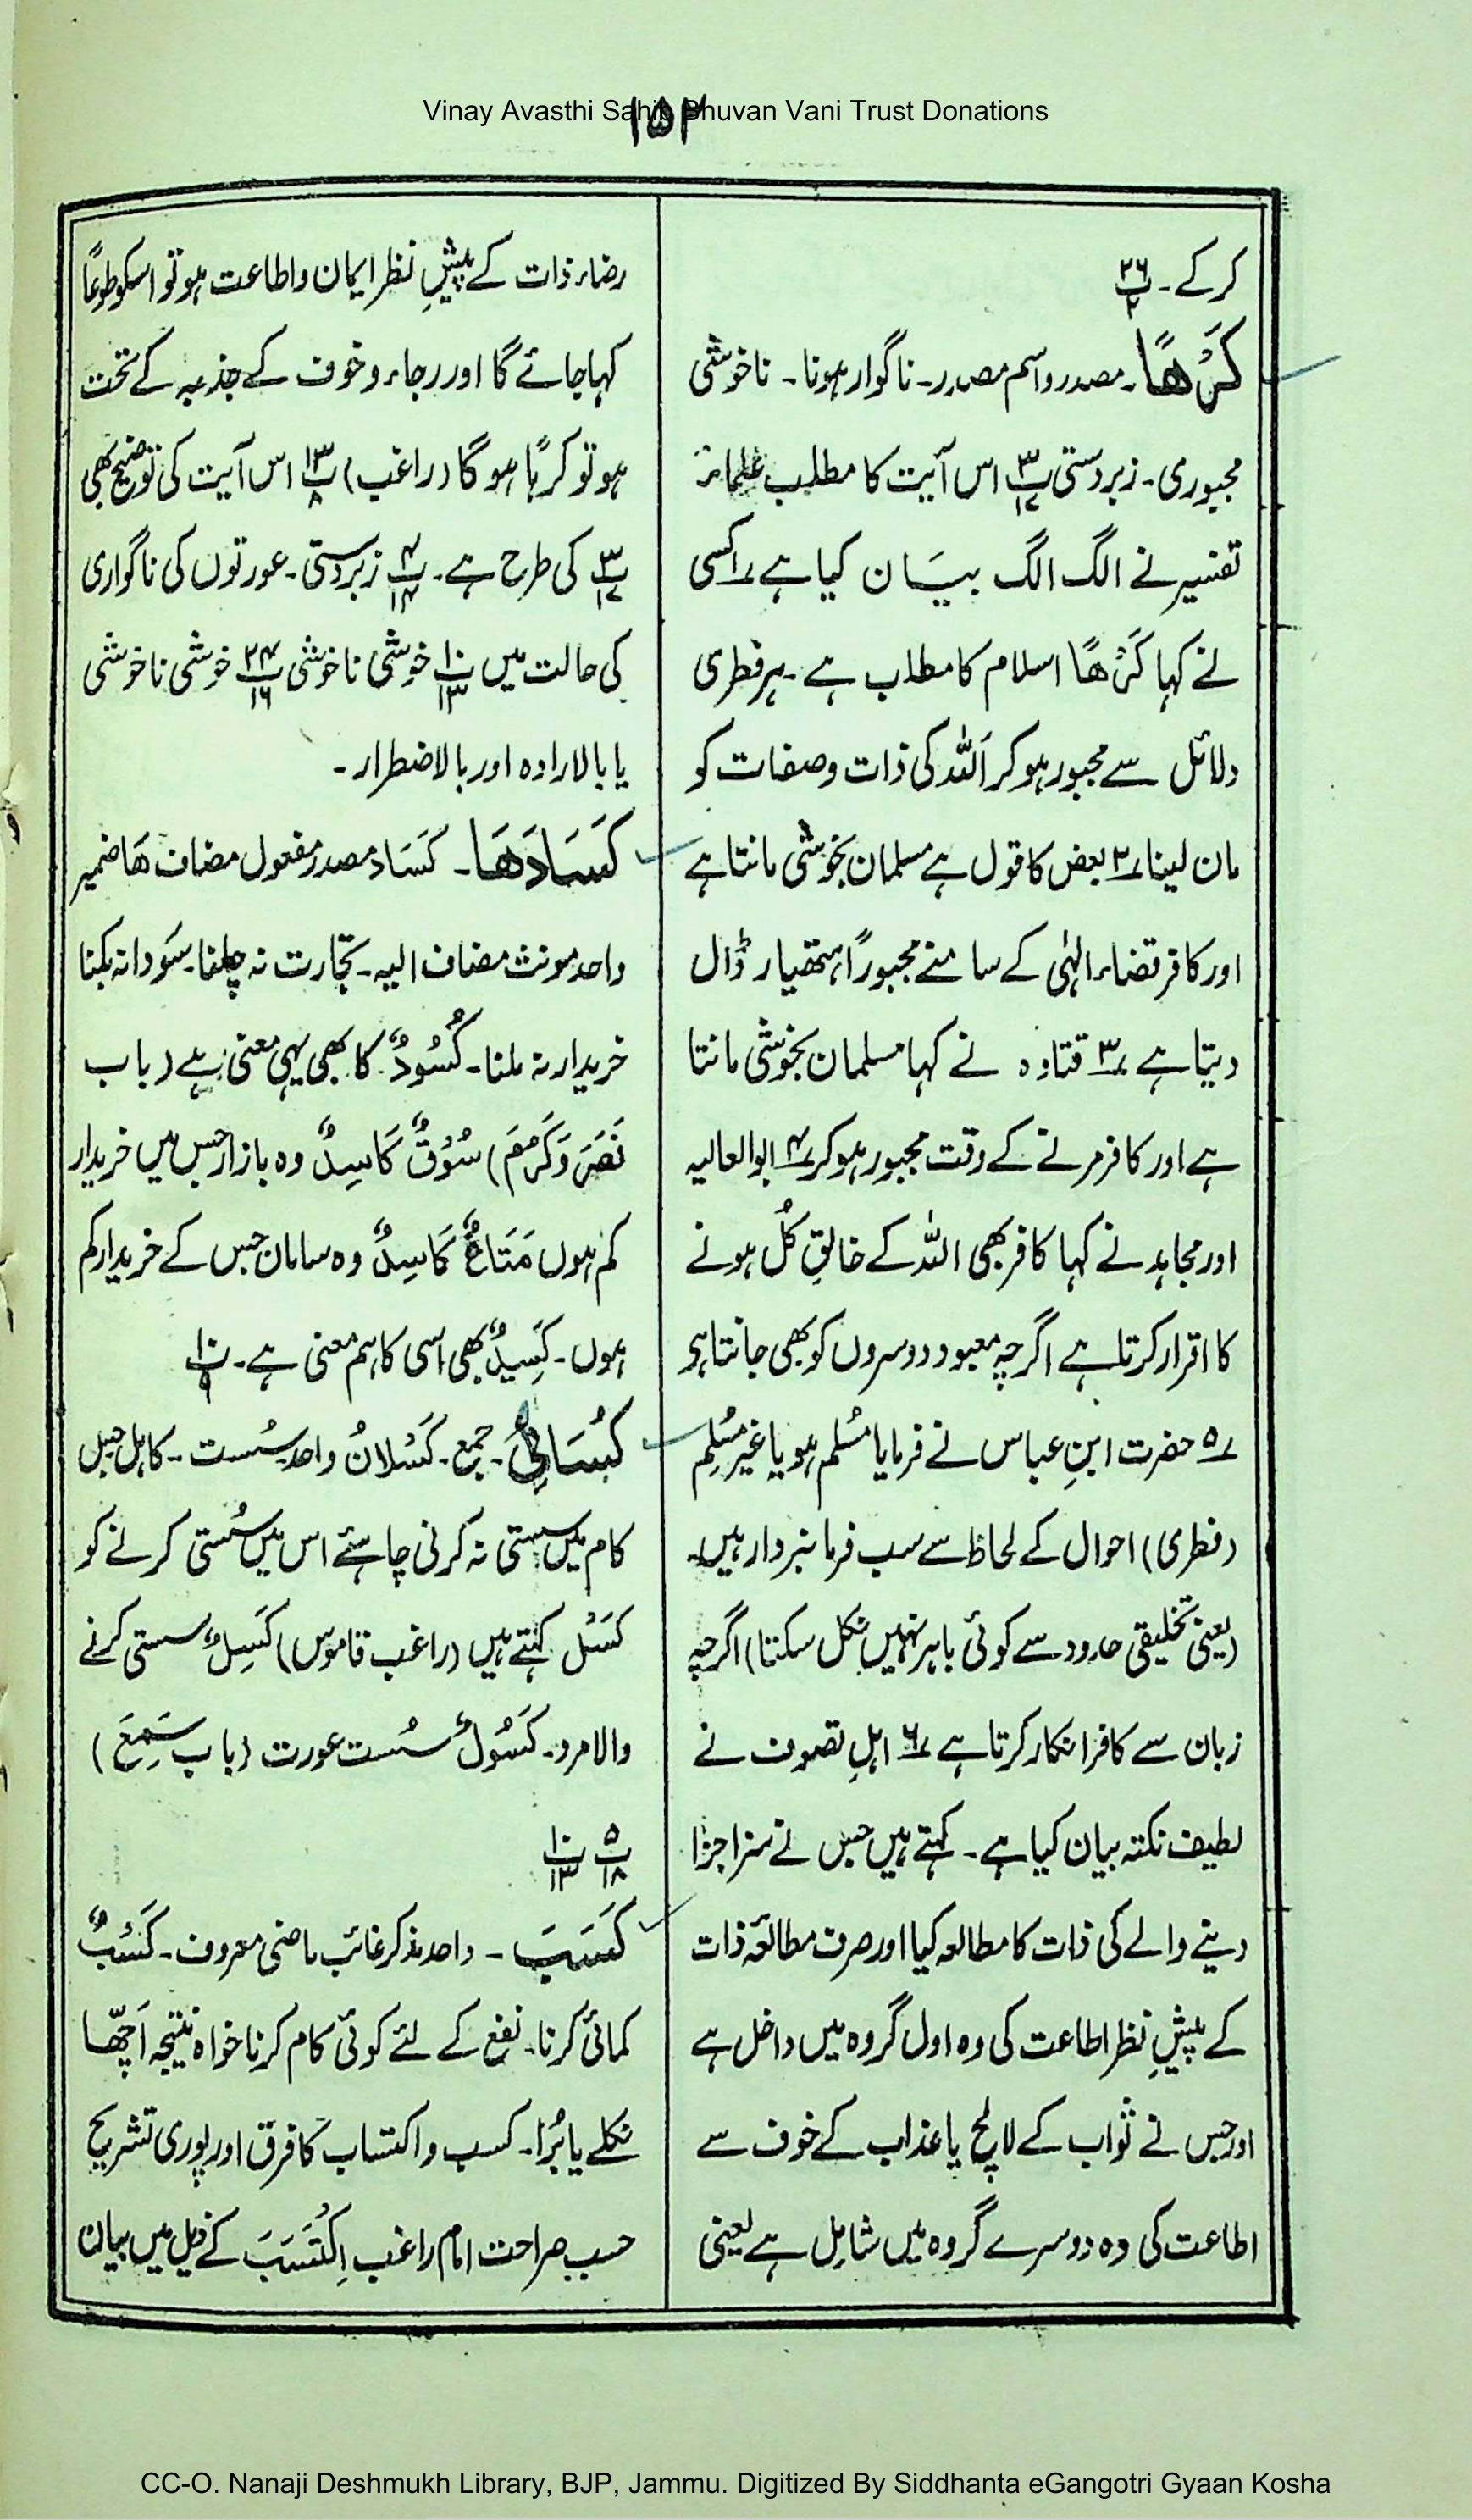 Vinay Avasthi Sahib Bhuvan Vani Trust Donations
۱۵۲
کرکے۔ پ۲۶
کَرْھًا۔ مصدر و اسم مصدر۔ ناگوار ہونا۔ ناخوشی
مجبوری۔ زبردستی پ۳/۱۷ اس آیت کا مطلب علماء
تفسیر نے الگ الگ بیان کیا ہے ۱؎ کسی
نے کہا کَرْھًا اسلام کا مطلب ہے۔ ہر فطری
دلائل سے مجبور ہو کر اَللہ کی ذات و صفات کو
مان لینا ۲؎ بعض کا قول ہے مسلمان بخوشی مانتا ہے
اور کافر قضاء الٰہی کے سامنے مجبوراً ہتھیار ڈال
دیتا ہے ۳؎ قتادہ نے کہا مسلمان بخوشی مانتا
ہے اور کافر مرنے کے وقت مجبور ہو کر ۴؎ ابوالعالیہ
اور مجاہد نے کہا کافر بھی اللہ کے خالقِ کُل ہونے
کا اقرار کرتا ہے اگرچہ معبود دوسروں کو بھی جانتا ہو
۵؎ حضرت ابنِ عباس نے فرمایا مُسلم ہو یا غیر مُسلِم
(فطری) احوال کے لحاظ سے سب فرمانبردار ہیں۔
(یعنی تخلیقی حدود سے کوئی باہر نہیں نکل سکتا) اگرچہ
زبان سے کافر انکار کرتا ہے ۶؎ اہلِ تصوف نے
لطیف نکتہ بیان کیا ہے۔ کہتے ہیں جس نے سزا جزا
دینے والے کی ذات کا مطالعہ کیا اور صرف مطالعۂ ذات
کے پیشِ نظر اطاعت کی وہ اول گروہ میں داخل ہے
اور جس نے ثواب کے لالچ یا عذاب کے خوف سے
اطاعت کی وہ دوسرے گروہ میں شامل ہے یعنی
رضاء ذات کے پیشِ نظر ایمان و اطاعت ہو تو اسکو طوعًا
کہا جائے گا اور رجاء و خوف کے جذبہ کے تحت
ہو تو کرہًا ہو گا (راغب) پ۱۳/۸ اس آیت کی توضیح بھی
پ۳/۱۷ کی طرح ہے۔ پ۴/۱۴ زبردستی۔ عورتوں کی ناگواری
کی حالت میں پ۱۰/۱۳ خوشی ناخوشی پ۲۴/۱۶ خوشی ناخوشی
یا بالارادہ اور بالاضطرار۔
کَسَادَھَا۔ کَسَاد مصدر مفعول مضاف ھَا ضمیر
واحد مونث مضاف الیہ۔ تجارت نہ چلنا۔ سَودا نہ بکنا
خریدار نہ ملنا۔ کُسُودٌ کا بھی یہی معنی ہے (باب
نَصَرَ وَ کَرُمَ) سُوْقٌ کَاسِدٌ وہ بازار جس میں خریدار
کم ہوں مَتَاعٌ کَاسِدٌ وہ سامان جس کے خریدار کم
ہوں۔ کَسِیدٌ بھی اسی کا ہم معنی ہے۔ پ۱۰/۹
کُسَالیٰ۔ جمع۔ کَسْلَانُ واحد سُست۔ کاہل جس
کام میں سستی نہ کرنی چاہئے اس میں سُستی کرنے کو
کَسَل کہتے ہیں (راغب قاموس) کَسِلٌ سستی کرنے
والا مرد۔ کَسُولٌ سُست عورت (باب سَمِعَ)
پ۵/۱۸ پ۱۰/۱۳
کَسَبَ۔ واحد مذکر غائب ماضی معروف۔ کَسْبٌ
کمائی کرنا۔ نفع کے لئے کوئی کام کرنا خواہ نتیجہ اَچّھا
نکلے یا بُرا۔ کسب و اکتساب کا فرق اور پوری تشریح
حسب صراحت امام راغب اِکْتَسَبَ کے ذیل میں بیان
CC-O. Nanaji Deshmukh Library, BJP, Jammu. Digitized By Siddhanta eGangotri Gyaan Kosha